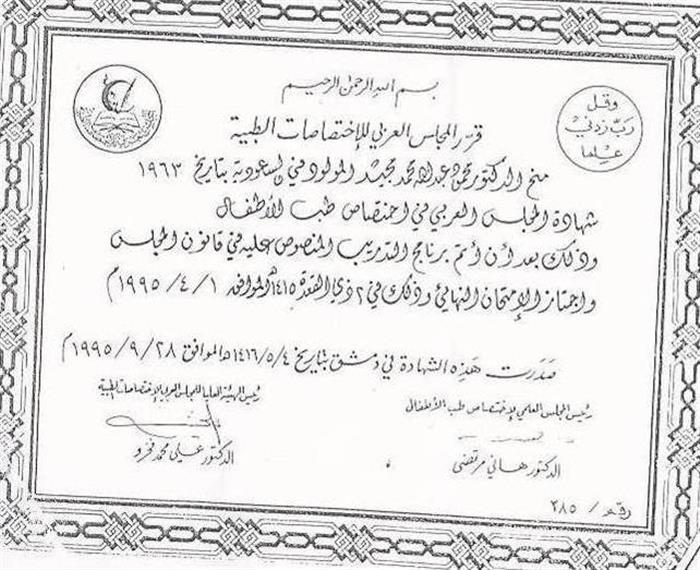 بسم الله الرحمن الرحيم
وقل
رب زدني
علما
قرر المجلس العربي للإختصاصات الطبية
منح الدكتور محمود عبدالله محمد مجيد المولود في السعودية بتاريخ ١٩٦٣
شهادة المجلس العربي في اختصاص طب الأطفال
وذلك بعد أن أتم برنامج التدريب المنصوص عليه في قانون المجلس
واجتاز الإمتحان النهائي وذلك في ٢ ذي القعدة ١٤١٥هـ الموافق ١ / ٤ / ١٩٩٥م
صدرت هذه الشهادة في دمشق بتاريخ ١٤١٦/٥/٤هـ الموافق ٢٨ / ٩ / ١٩٩٥م
رئيس المجلس العلمي لإختصاص طب الأطفال
الدكتور هاني مرتضى
رئيس الهيئة العليا للمجلس العربي للإختصاصات الطبية
الدكتور علي محمد فخرو
رقم / ٢٨٥